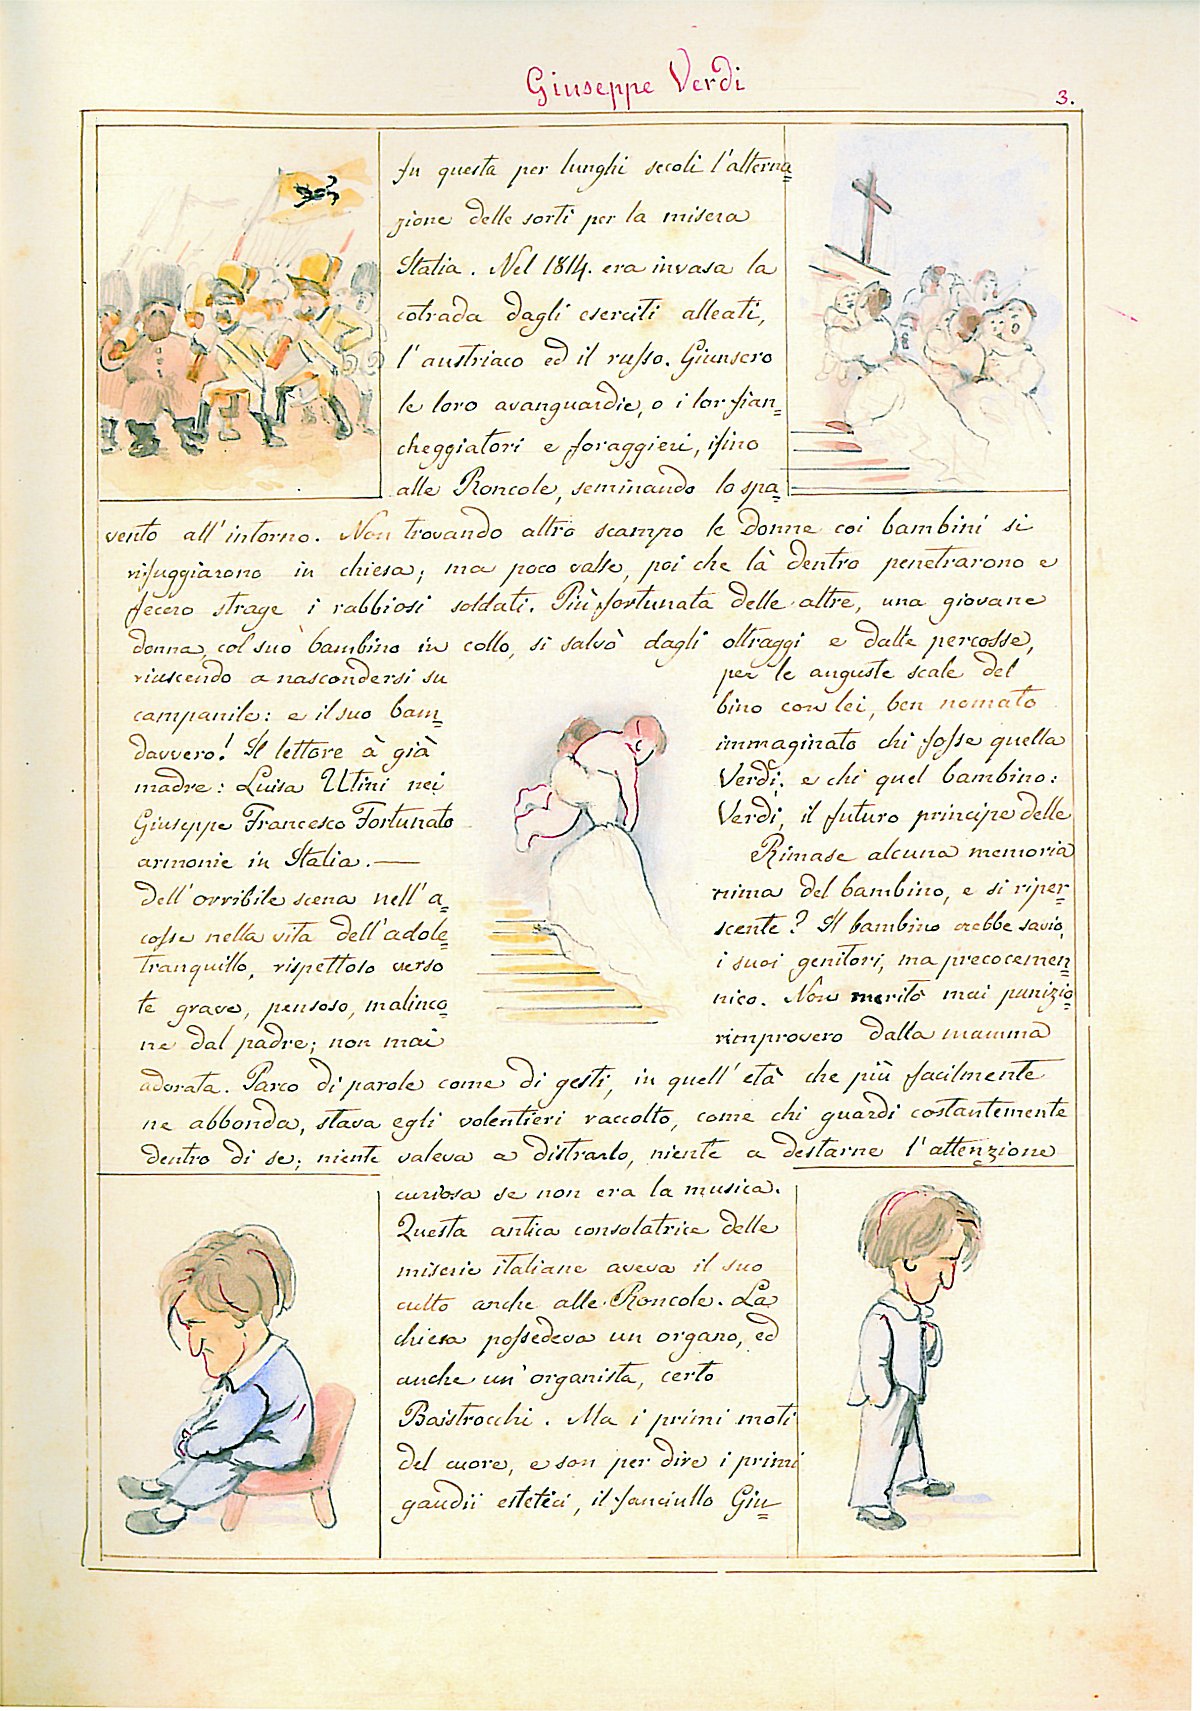 Giuseppe Verdi
3.
Fu questa per lunghi secoli l'alterna=
zione delle sorti per la misera
Italia. Nel 1814. era invasa la
cotrada dagli eserciti alleati,
l'austriaco ed il russo. Giunsero
le loro avanguardie, o i lor fian=
cheggiatori e foraggieri, ifino
alle Roncole, seminando lo spa=
vento all'intorno. Non trovando altro scampo le donne coi bambini si
rifuggiarono in chiesa; ma poco valse, poi che là dentro penetrarono e
fecero strage i rabbiosi soldati. Più fortunata delle altre, una giovane
donna, col suo bambino in collo, si salvò dagli oltraggi e dalle percosse,
riuscendo a nascondersi su per le auguste scale del
campanile: e il suo bam= bino con lei, ben nomato
davvero! Il lettore à già immaginato chi fosse quella
madre: Luisa Utini nei Verdi; e chi quel bambino:
Giuseppe Francesco Fortunato Verdi, il futuro principe delle
armonie in Italia. — Rimase alcuna memoria
dell'orribile scena nell'a= nima del bambino, e si riper=
cosse nella vita dell'adole= scente? Il bambino crebbe savio,
tranquillo, rispettoso verso i suoi genitori, ma precocemen=
te grave, pensoso, malinco= nico. Non meritò mai punizio=
ne dal padre; non mai rimprovero dalla mamma
adorata. Parco di parole come di gesti, in quell'età che più facilmente
ne abbonda, stava egli volentieri raccolto, come chi guardi costantemente
dentro di se; niente valeva a distrarlo, niente a destarne l'attenzione
curiosa se non era la musica.
Questa antica consolatrice delle
miserie italiane aveva il suo
culto anche alle Roncole. La
chiesa possedeva un organo, ed
anche un'organista, certo
Baistrocchi. Ma i primi moti
del cuore, e son per dire i primi
gaudii estetici, il fanciullo Giu=